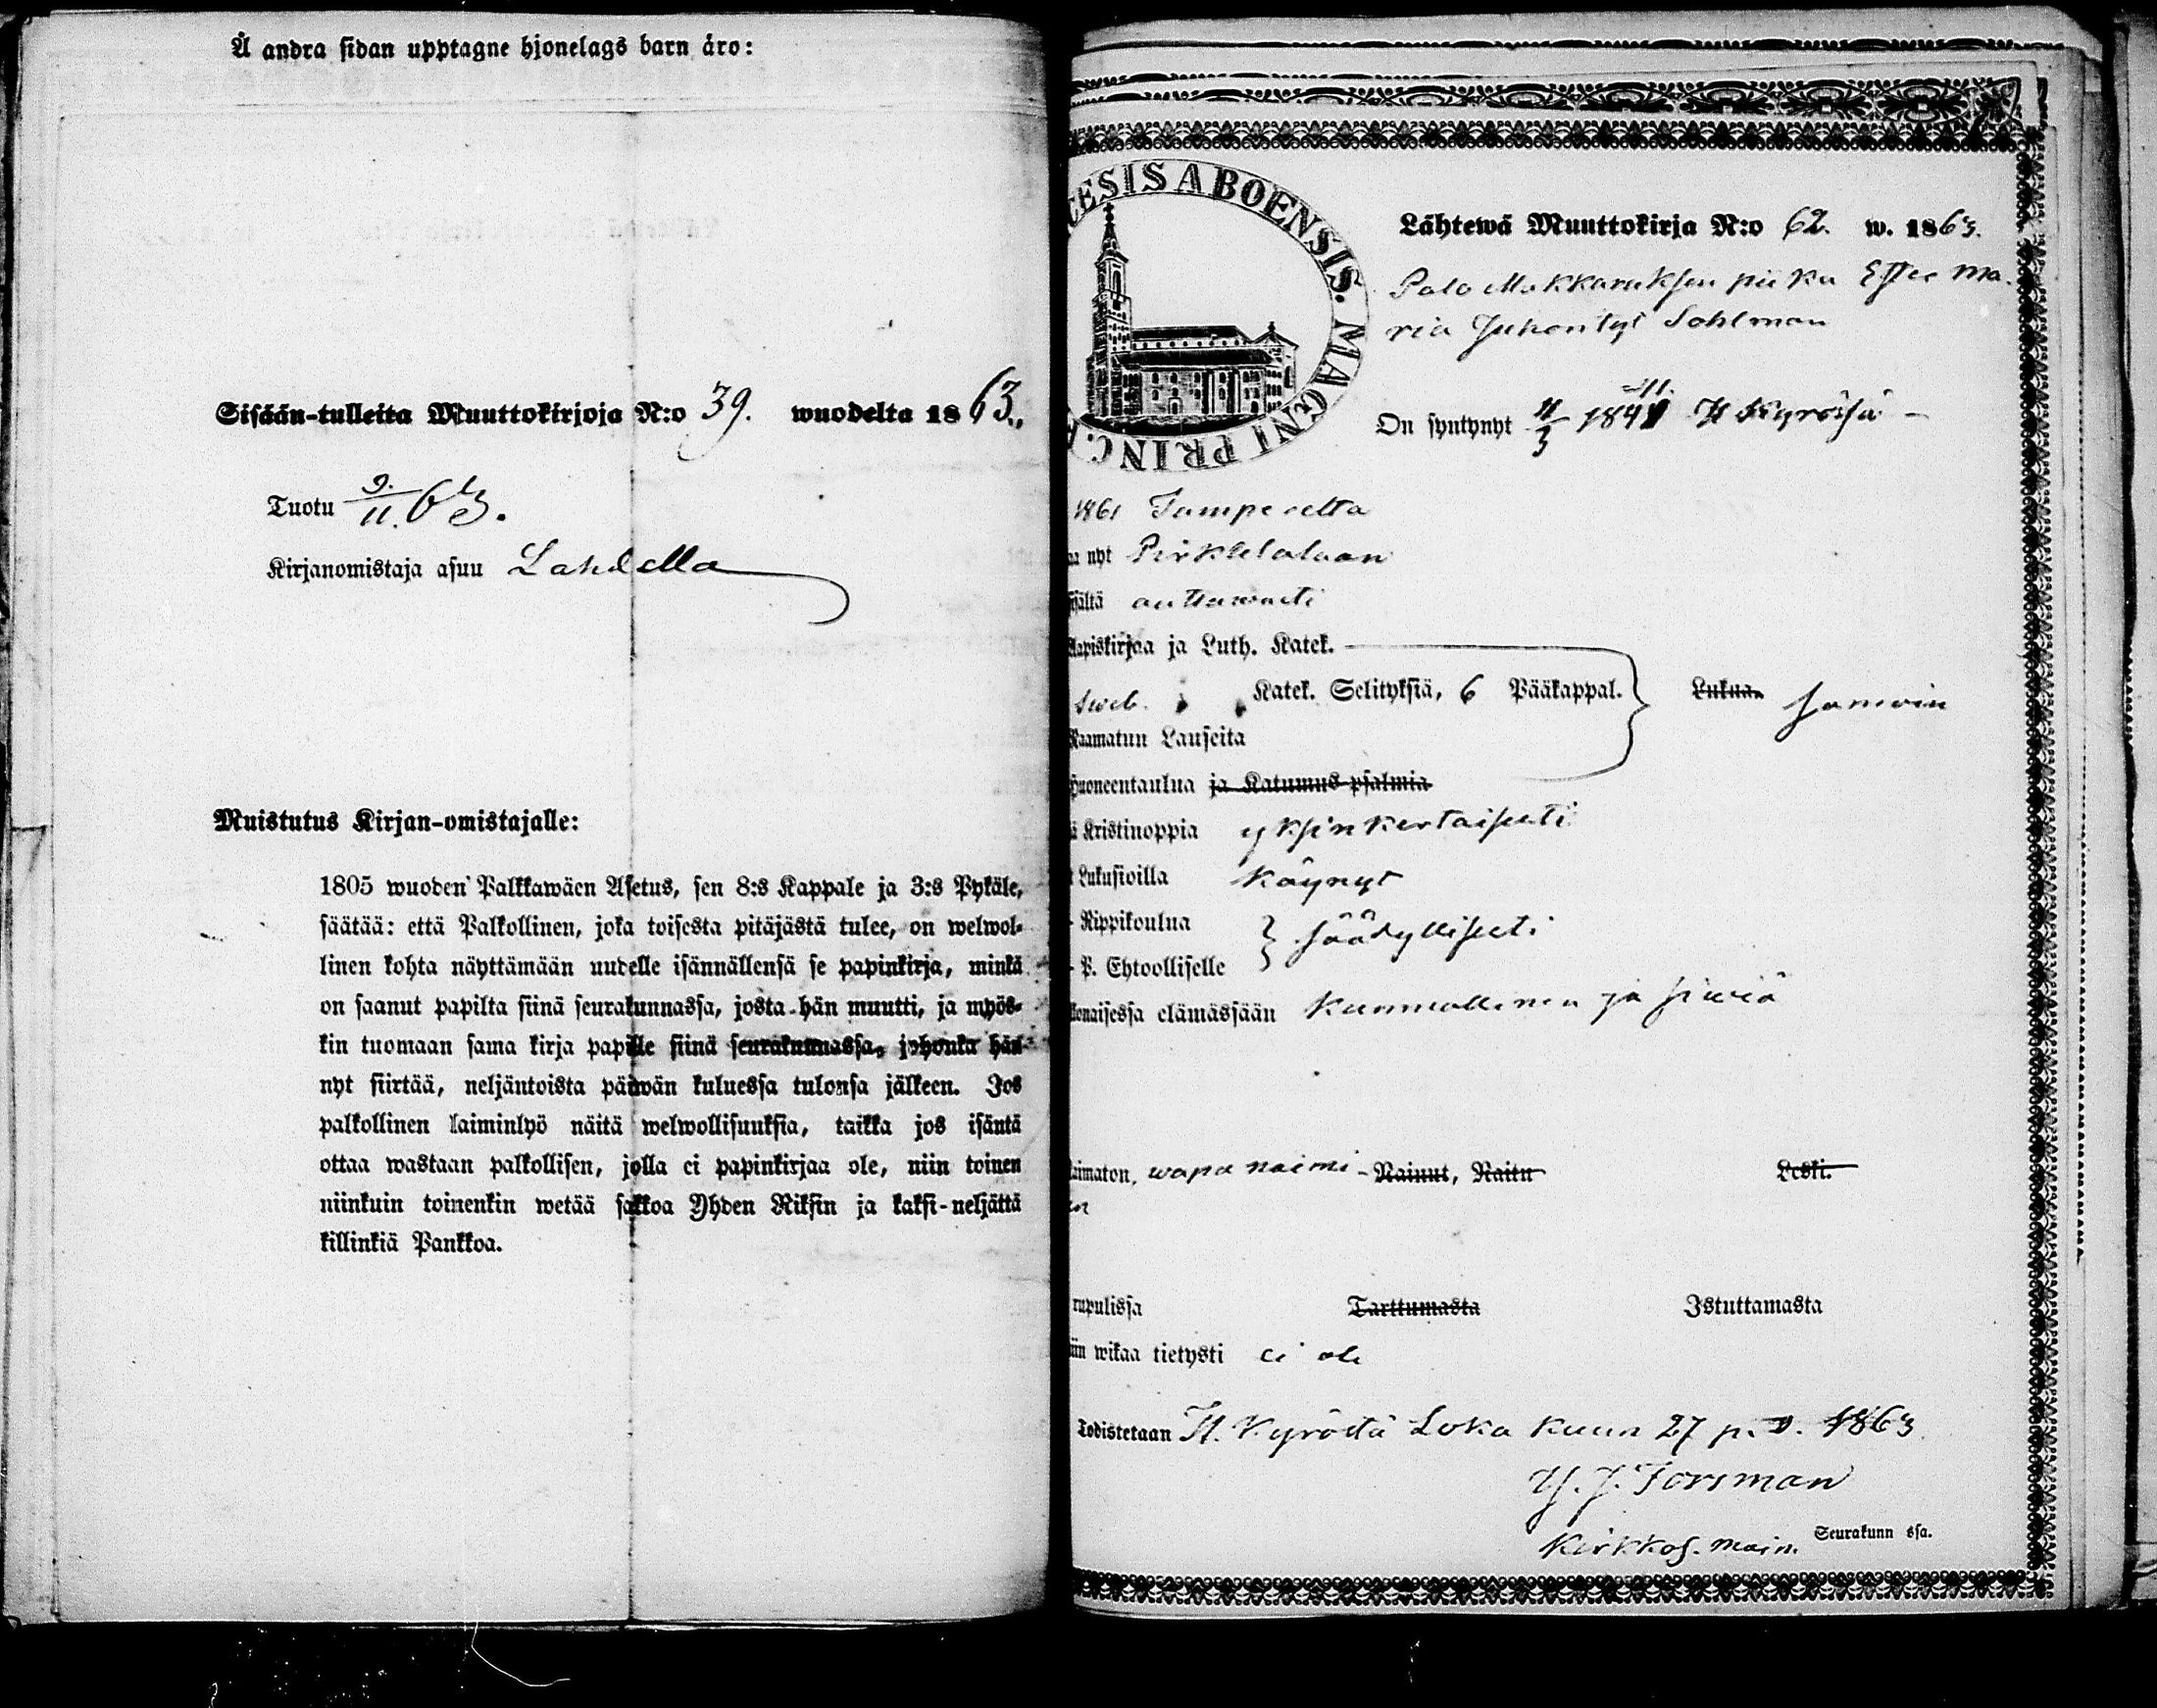 Å andra sidan upptagne hjonelags barn äro:
Sisään-tulleita Muuttokirjoja N:o 39. wuodelta 1863.
Tuotu 9./11. 63.
Kirjanomistaja asuu Lahdella
Muistutus Kirjan-omistajalle:
1805 wuoden Palkkawäen Asetus, sen 8:s Kappale ja 3:s Pykäle,
säätää: että Palkollinen, joka toisesta pitäjästä tulee, on welwol-
linen kohta näyttämään uudelle isännällensä se papinkirja, minkä
on saanut papilta siinä seurakunnassa, josta hän muutti, ja myös-
kin tuomaan sama kirja papille siinä seurakunnassa, johonka hän
nyt siirtää, neljäntoista päiwän kuluessa tulonsa jälkeen. Jos
palkollinen laiminlyö näitä welwollisuuksia, taikka jos isäntä
ottaa wastaan palkollisen, jolla ei papinkirjaa ole, niin toinen
niinkuin toinenkin wetää sakkoa Yhden Riksin ja kaksi-neljättä
killinkiä Pankkoa.
CESIS ABOENSIS. MAGNI PRINC.
Lähtewä Muuttokirja N:o 62. w. 1863.
Palo Makkaruksen piika Ester Ma-
ria Juhontyt Sohlman
41.
On syntynyt 11/3 1841 H Kyrössä
1861 Tampereelta
nyt Pirkkalalaan
ältä auttawasti
Aapiskirjaa ja Luth. Katek.
Sweb. Katek. Selityksiä, 6 Pääkappal. Lukua. samoin
Raamatun Lauseita
Huoneentaulua ja Katumus-psalmia
ä Kristinoppia yksinkertaisesti
Lukusioilla käynyt
Rippikoulua
säädyllisesti
P. Ehtoolliselle
onaisessa elämässään kunniallinen ja siwiä
aimaton, wapa naimi- Nainut, Naitu Leski.
en
rupulissa Tarttumasta Istuttamasta
iin wikaa tietysti ei ole
Todistetaan H. Kyröstä Loka kuun 27 p. 1863
Y. J. Forsman
Kirkkoh. Seurakunn ssa.